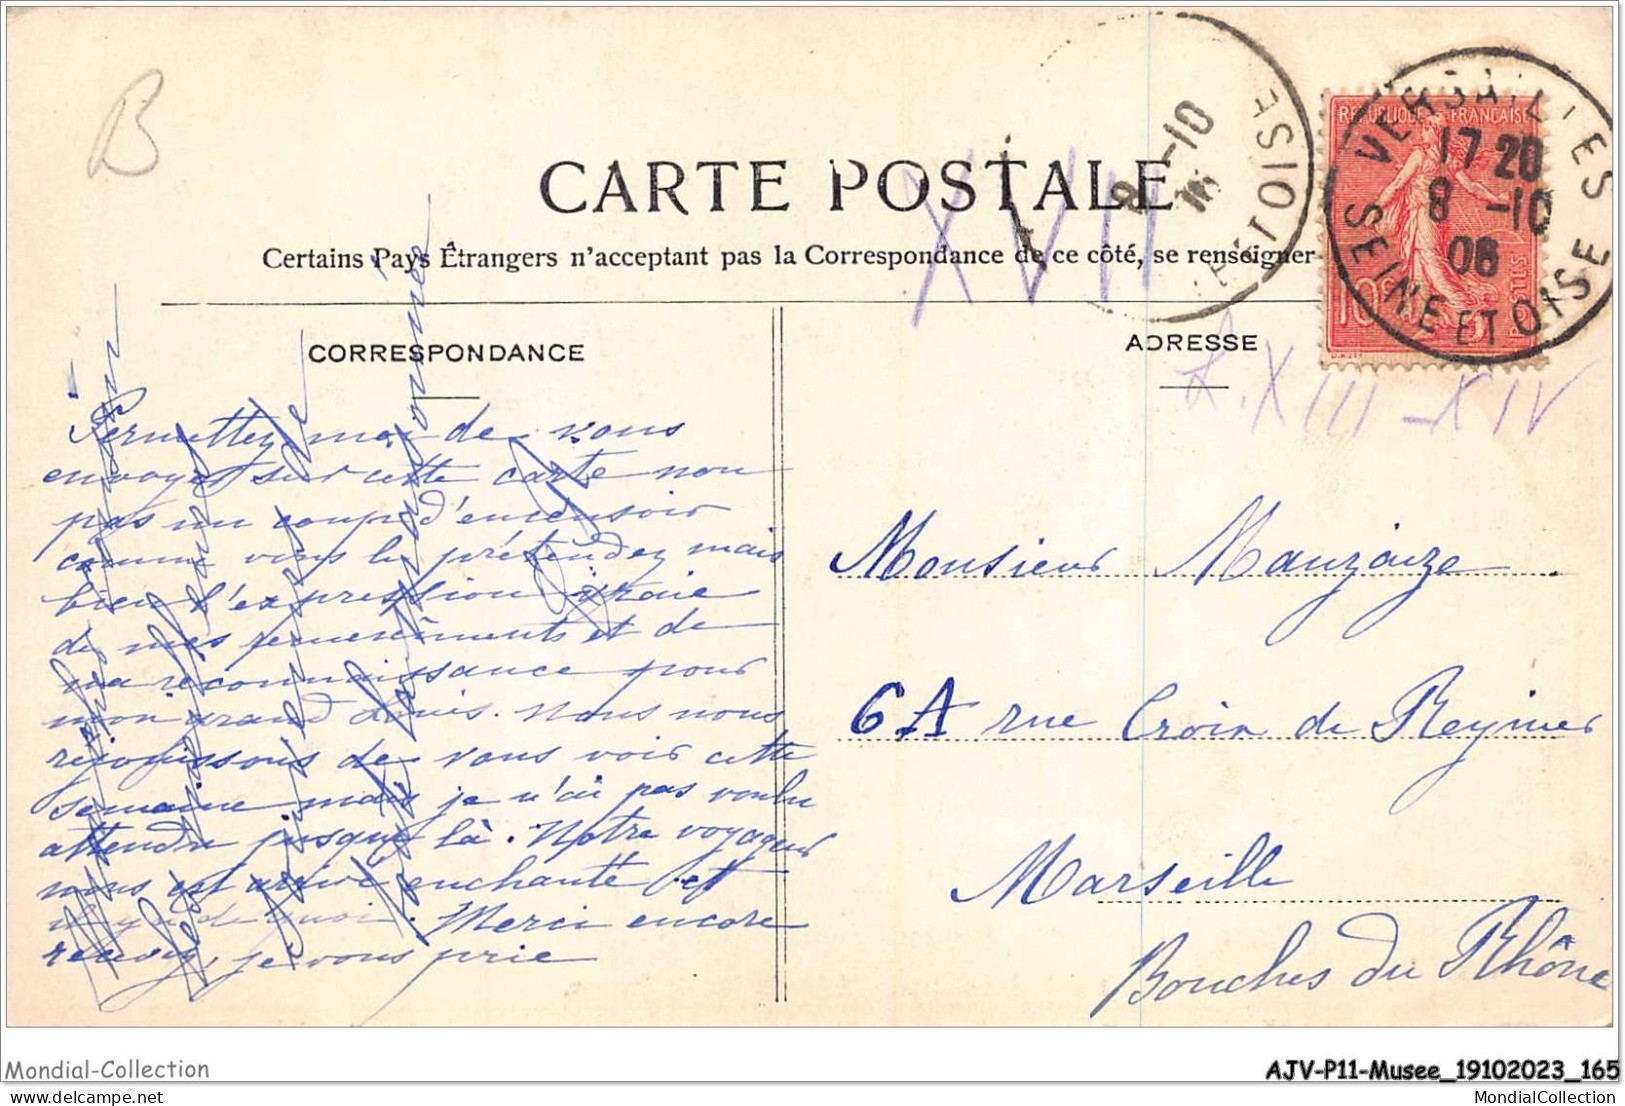 B
CARTE POSTALE
Certains Pays Étrangers n'acceptant pas la Correspondance de ce côté, se renseigner
XVII
8 -10
OISE
REPUBLIQUE FRANCAISE
10c
POSTES
VERSAILLES
17 20
8 -10
06
SEINE ET OISE
CORRESPONDANCE
ADRESSE
L. XIII - XIV
Permettez moi de vous
envoyer sur cette carte non
pas un coup d'encensoir
comme vous le prétendez mais
bien l'expression vraie
de mes remerciments et de
ma reconnaissance pour
mon grand Louis. Nous nous
rejouissons de vous voir cette
semaine mais je n'ai pas voulu
attendre jusque là. Notre voyageur
nous est arrivé enchanté et
il y a de quoi. Merci encore
recevez, je vous prie
Monsieur Mauzaize
6A rue Croix de Reynier
Marseille
Bouches du Rhône
Mondial-Collection
AJV-P11-Musee_19102023_165
MondialCollection